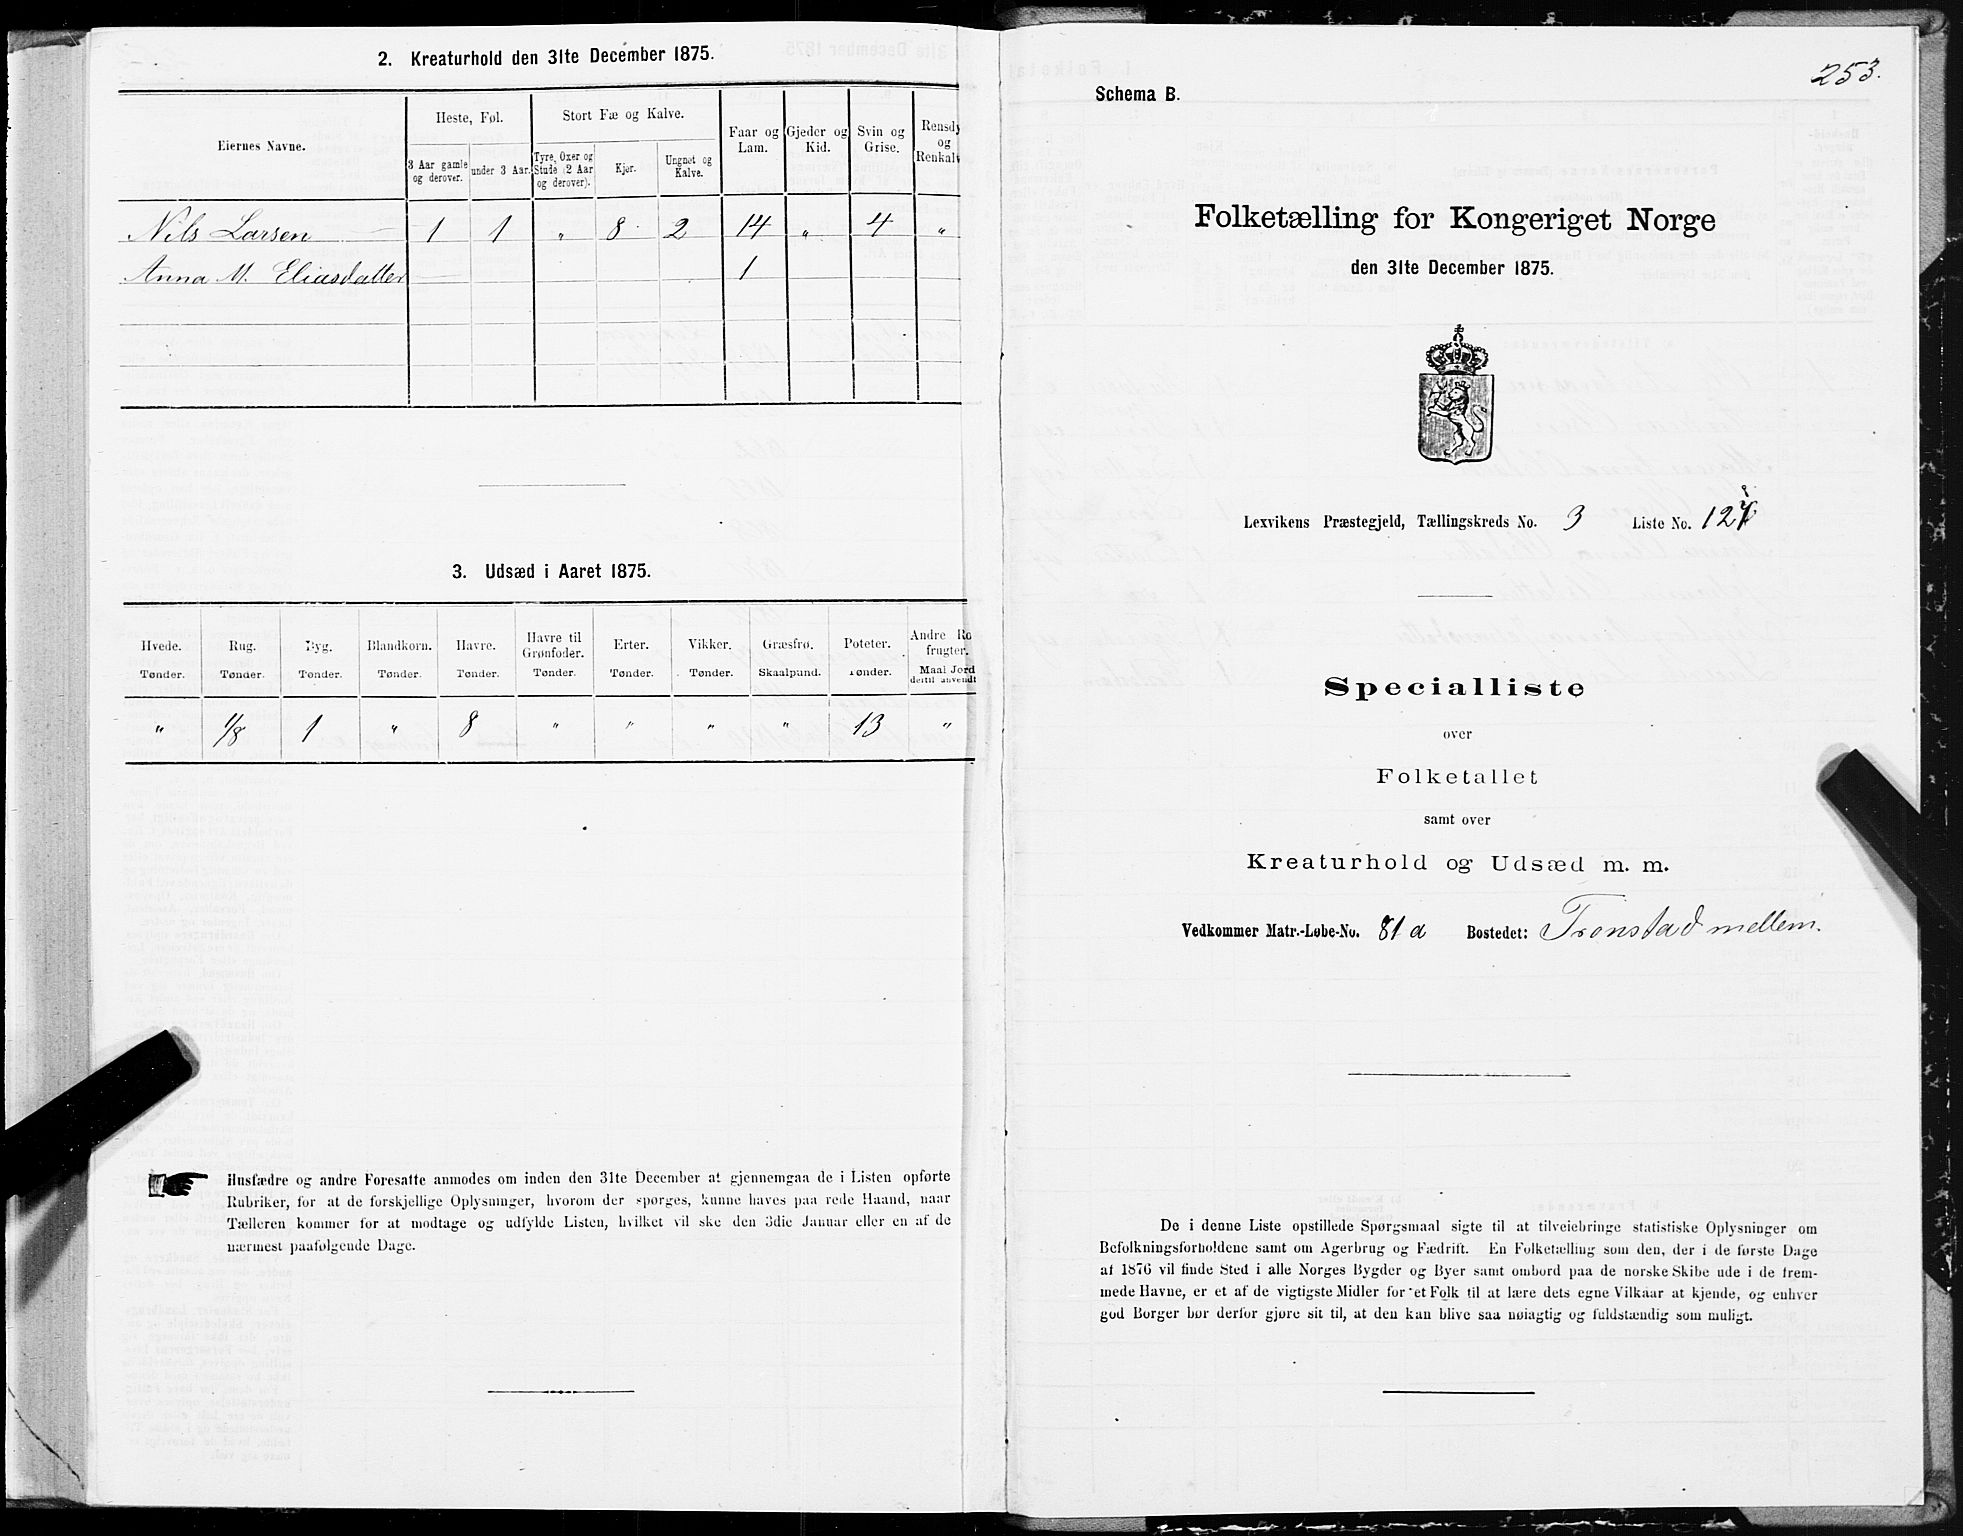 2. Kreaturhold den 31te December 1875.
Eiernes Navne. Heste, Føl. Stort Fæ og Kalve. Faar og Lam. Gjeder og Kid. Svin og Grise. Rensdy og Renkalv
3 Aar gamle og derover. under 3 Aar. Tyre, Oxer og Stude (2 Aar og derover). Kjør. Ungnet og Kalve.
Nils Larsen 1 1 " 8 2 14 " 4 "
Anna M. Eliasdatter 1
3. Udsæd i Aaret 1875.
Hvede. Rug. Byg. Blandkorn. Havre. Havre til Grønfoder. Erter. Vikker. Græsfrø. Poteter. Andre Ro frugter.
Tønder. Tønder. Tønder. Tønder. Tønder. Tønder. Tønder. Tønder. Skaalpund. Tønder. Maal Jord dertil anvendt
" 1/8 1 " 8 " " " " 13 "
Husfædre og andre Foresatte anmodes om inden den 31te December at gjennemgaa de i Listen opførte
Rubriker, for at de forskjellige Oplysninger, hvorom der spørges, kunne haves paa rede Haand, naar
Tælleren kommer for at modtage og udfylde Listen, hvilket vil ske den 3die Januar eller en af de
nærmest paafølgende Dage.
253.
Schema B.
Folketælling for Kongeriget Norge
den 31te December 1875.
Lexvikens Præstegjeld, Tællingskreds No. 3 Liste No.
Specialliste
over
Folketallet
samt over
Kreaturhold og Udsæd m. m.
Vedkommer Matr.-Løbe-No. 81a Bostedet: Tronstad mellem.
De i denne Liste opstillede Spørgsmaal sigte til at tilveiebringe statistiske Oplysninger om
Befolkningsforholdene samt om Agerbrug og Fædrift. En Folketælling som den, der i de første Dage
af 1876 vil finde Sted i alle Norges Bygder og Byer samt ombord paa de norske Skibe ude i de frem-
mede Havne, er et af de vigtigste Midler for et Folk til at lære dets egne Vilkaar at kjende, og enhver
god Borger bør derfor gjøre sit til, at den kan blive saa nøiagtig og fuldstændig som muligt.